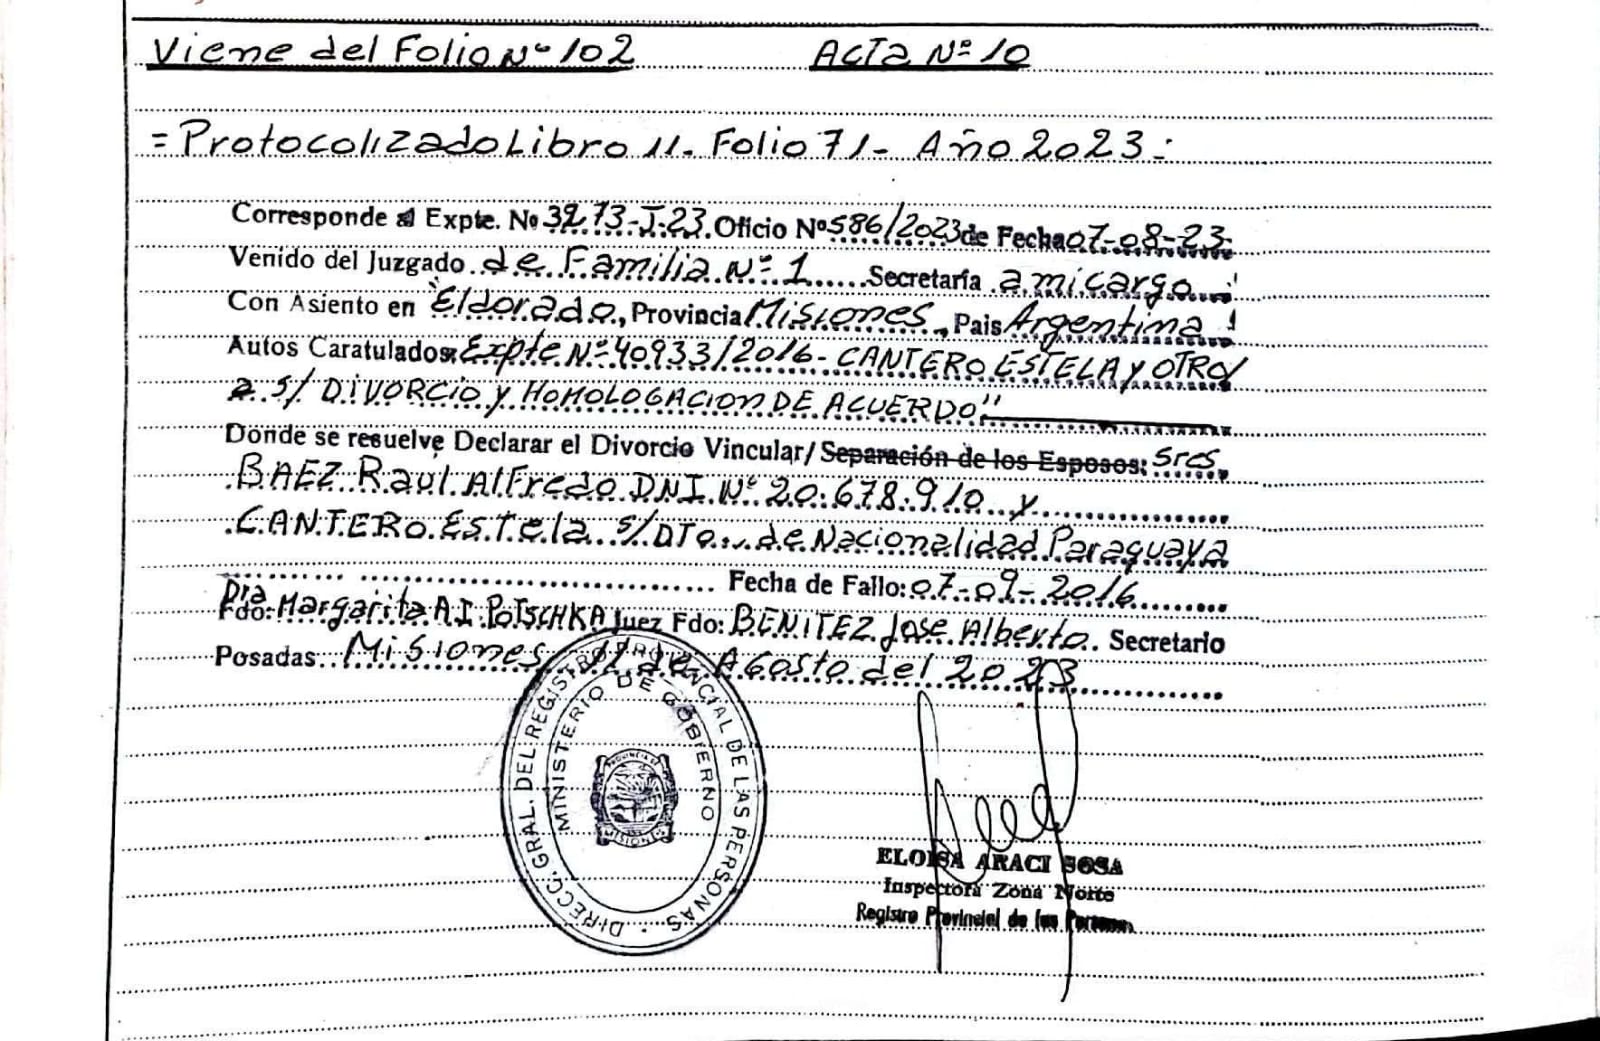 Viene del Folio Nº 102 Acta Nº 10
= Protocolizado Libro 11. Folio 71 - Año 2023 :
Corresponde al Expte. Nº 3273-I-23. Oficio Nº 586/2023 de Fecha 07-08-23.
Venido del Juzgado de Familia Nº 1 Secretaría a mi cargo
Con Asiento en Eldorado, Provincia Misiones, Pais Argentina
Autos Caratulados: Expte Nº 40933/2016 - CANTERO ESTELA Y OTRO/
a s/ DIVORCIO y HOMOLOGACION DE ACUERDO"
Donde se resuelve Declarar el Divorcio Vincular/ Separación de los Esposos: Sres.
BAEZ Raul Alfredo DNI. Nº 20.678.910 y
CANTERO Estela s/DTO... de Nacionalidad Paraguaya
Fecha de Fallo: 07-09-2016
Dra
Fdo: Margarita A.I. POTSCHKA Juez Fdo: BENITEZ Jose Alberto. Secretario
Posadas Misiones, 11 de Agosto del 2023
DIRECC. GRAL. DEL REGISTRO PROVINCIAL DE LAS PERSONAS
MINISTERIO DE GOBIERNO
PROVINCIA DE
MISIONES
ELOISA ARACI SOSA
Inspectora Zona Norte
Registro Provincial de las Personas